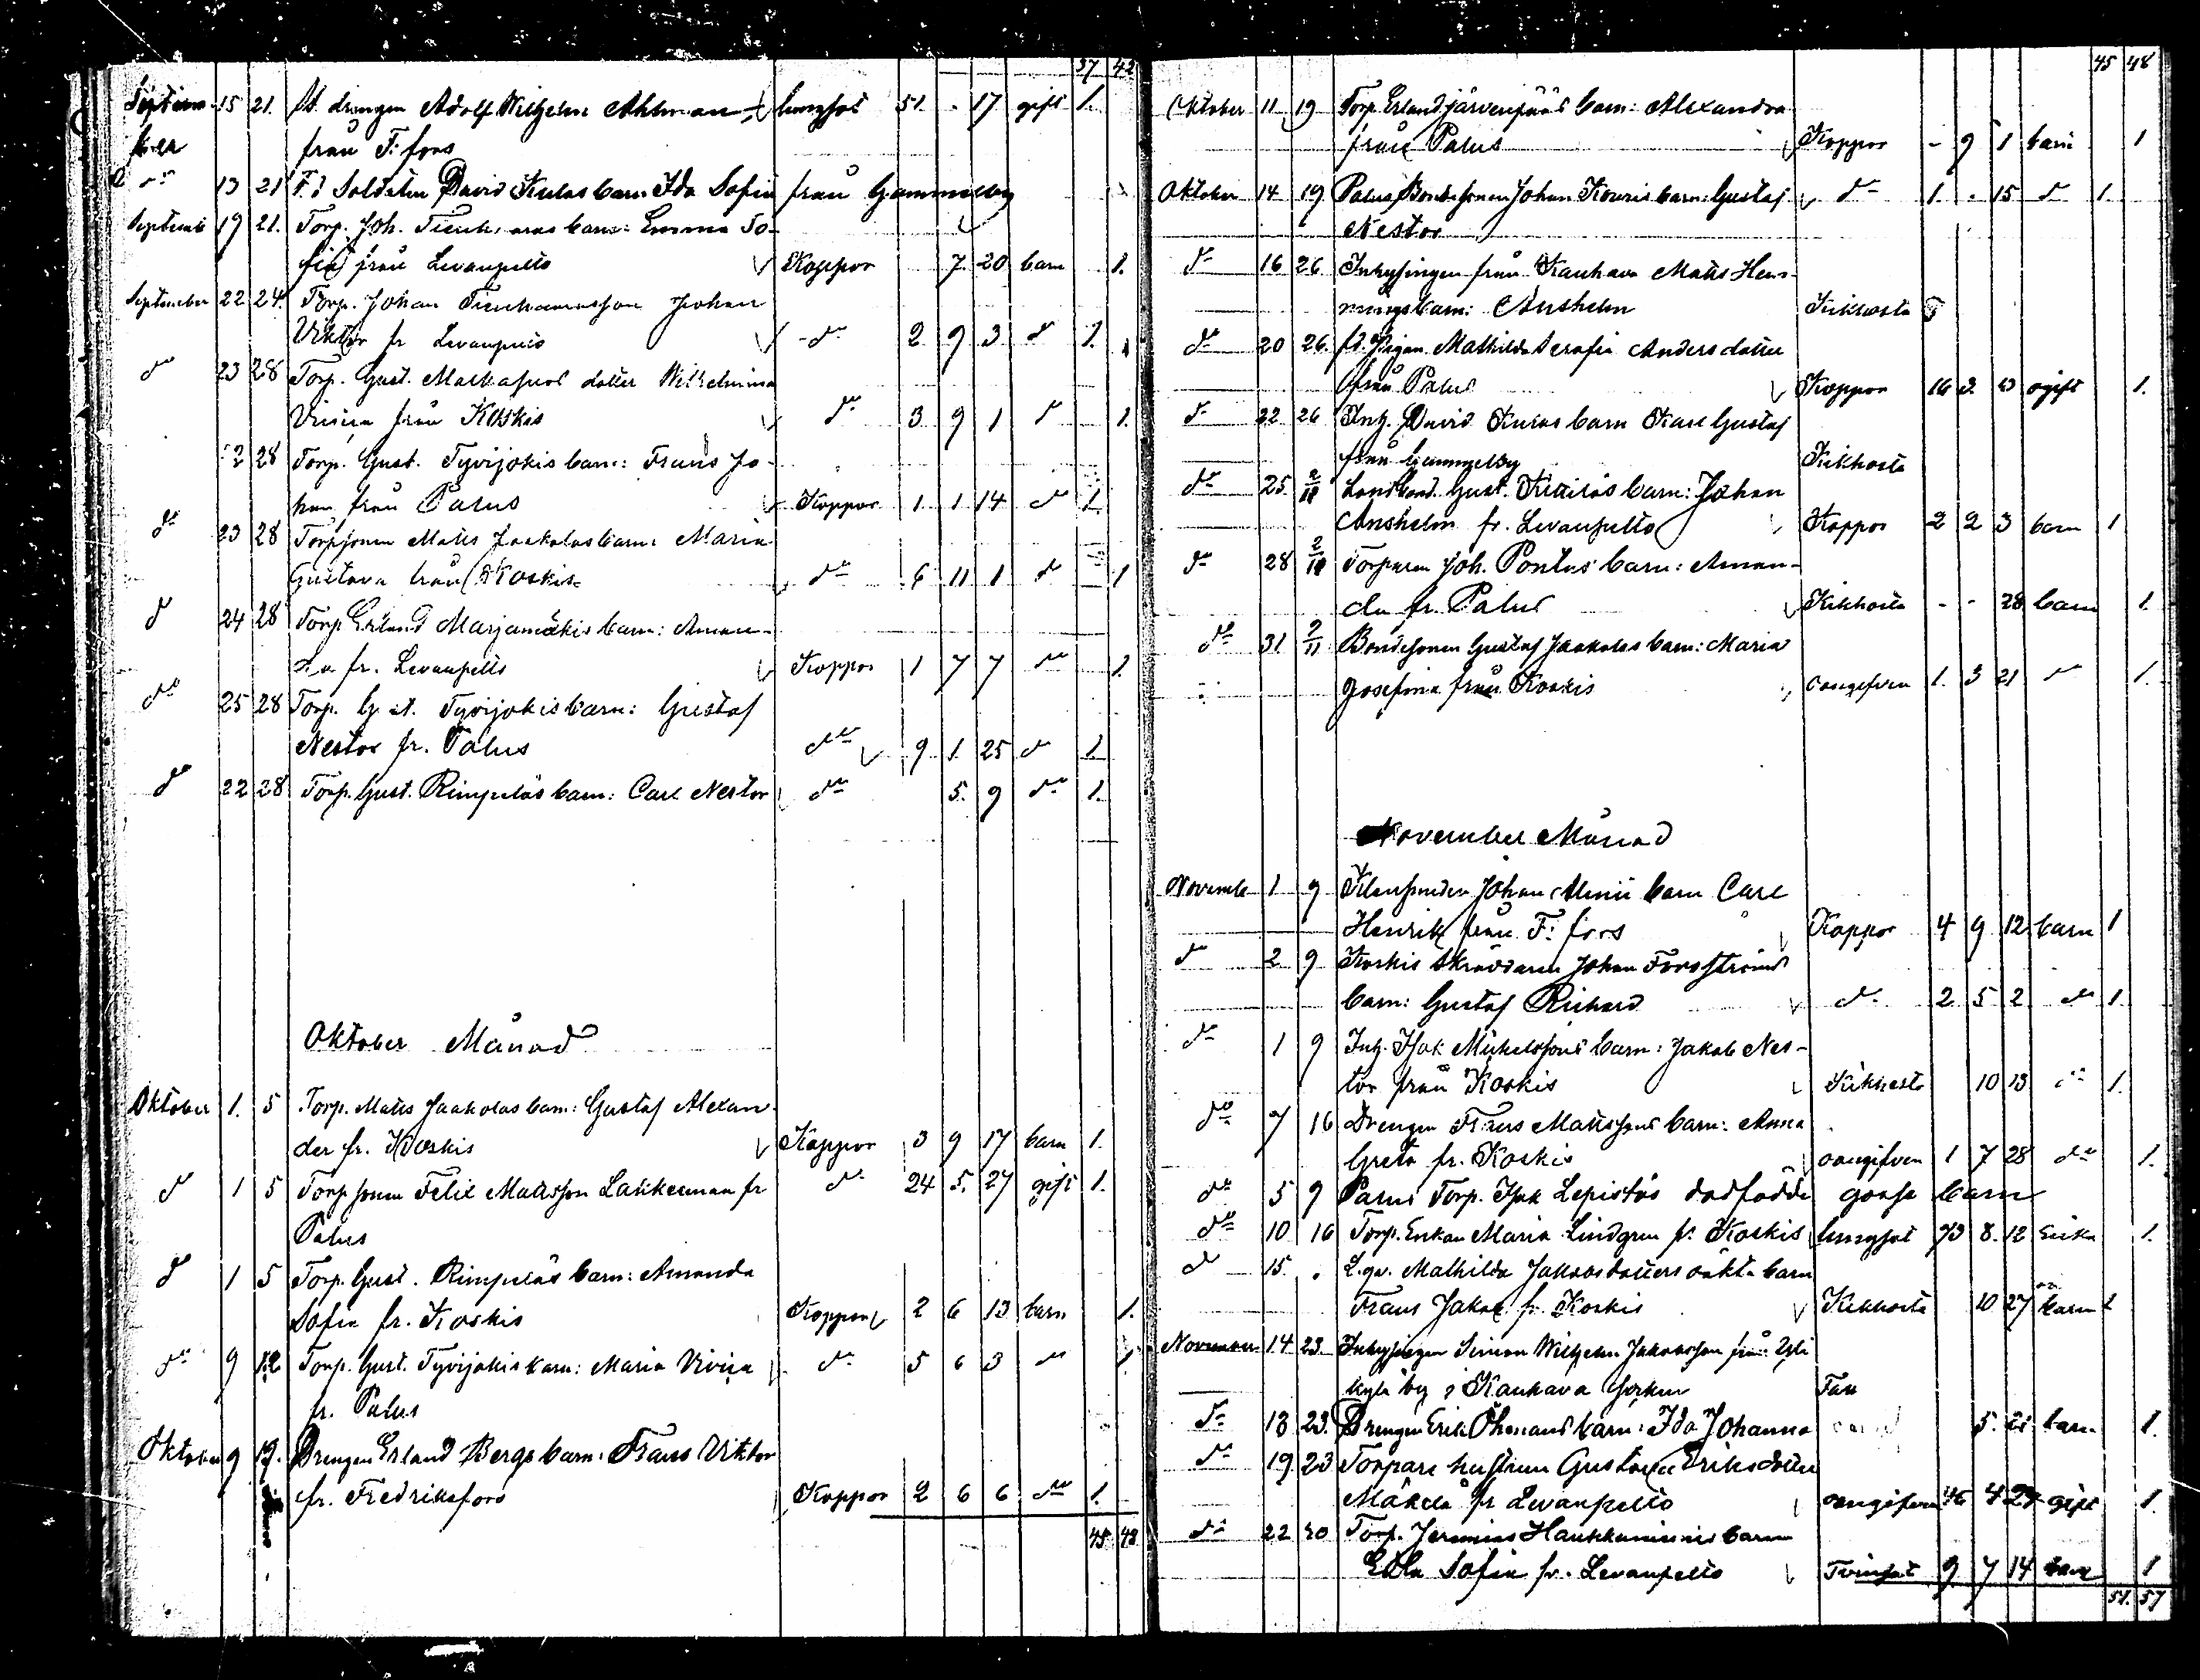 37 42
Septem- 15 21. fd. drengen Adolf Wilhelm Ahlman lungsot 51. - 17 gift 1.
ber från F: fors
do 13 21 F. d Soldaten David Kulas barn Ida Sofia från Gammelby
Septemb 19 21. Torp. Joh. barn: Emma So-
fia från Levanpelto Koppor 7 20 barn 1.
September 22 24. Torp. Johan Johan
Viktor fr Levanpelto do 2 9 3 do 1.
do 23 28 Torp. Gust. dotter Wilhelmina
från Koskis do 3 9 1 do 1.
28 Torp. Gust. Tyvijokis barn: Frans Jo-
han från Palus Koppor 1 1 14 do 1.
do 23 28 Torpsonen Matts Jaakolas barn: Maria
Gustava från Koskis do 6 11 1 do 1
do 24 28 Torp Erland Marjamäkis barn: Aman-
da fr. Levanpelto Koppor 1 7 7 do 1.
do 25 28 Torp. Tyvijokis barn: Gustaf
Nestor fr. Palus do 9 1 25 do 1.
do 22 28 Torp. Gust. Rimpiläs barn: Carl Nestor do 5. 9 do 1.
Oktober Månad
Oktober 1. 5 Torp. Matts Jaakolas barn: Gustaf Alexan-
der fr. Koskis Koppor 3 9 17 barn 1.
do 1 5 Torpsonen Felix Mattsson fr do 24 5. 27 gift 1.
Palus
do 1 5 Torp. Gust. Rimpiläs barn: Amanda
Sofia fr. Koskis Koppor 2 6 13 barn 1.
do 9 12 Torp. Gust. Tyvijokis barn: Maria do 5 6 3 do 1
fr. Palus
Oktober 9 Drengen Erland Bergs barn: Frans Viktor
fr. Fredriksfors Koppor 2 6 6 do 1.
45 48
45 48
Oktober 11 19 Torp. Erland Järvenpääs barn: Alexandra
från Palus Koppor - 9 1 barn 1
Oktober 14 19 Palus Bondesonen Johan Kouris barn: Gustaf do 1. - 15 do 1.
Nestor
do 16 26 Inhysingen från Kauhava Matts Hen-
nings barn: Anshelm Kikhosta
do 20 26. fd. Pigan Mathilda Serafia Andersdotter
från Palus Koppor 16 ogift 1.
do 22 26 Inh. David Kulas barn Karl Gustaf
från Gammelby Kikhosta
do 25 Landbond. Gust. barn: Johan
Anshelm fr. Levanpelto Koppor 2 2 3 barn 1
do 28 Torparen Joh. Pontus barn: Aman-
da fr. Palus Kikhosta - - 28 barn 1.
do 31 2/11 Bondesonen Gustaf Jaakolas barn: Maria
Josefina från Koskis oangifven 1. 3 21 do 1.
November Månad
Novemb 1 9 Johan barn Carl
Henrik från F: fors Koppor 4 9 12 barn 1
do 2 9 Koskis Skräddaren Johan Forsströms
barn: Gustaf Richard do 2 5 2 do 1.
do 1 9 Inh. Isak Mickelssons barn: Jakob Nes-
tor från Koskis Kikhosta 10 13 do 1.
do 7 16 Drengen Frans Mattssons barn: Anna
Greta fr. Koskis oangifven 1 7 28 do 1.
do 5 9 Palus Torp. Isak Lepistös dödfödde gosse barn
do 10 16 Torp. Enkan Maria Lindgren fr. Koskis lungsot 73 8. 12 Enka 1.
do 15. Mathilda Jakobsdotters oäkta barn
Frans Jakob fr. Koskis Kikhosta 10 27 barn 1
November 14 23 Inhysingen Simon Wilhelm Jakobsson från Yli
kylä by i Kauhava Socken
do 13 23. Drengen Erik Öhmans barn: Ida Johanna 5. barn 1.
do 19 23 Torpare hustrun Gustava Eriksdotter
Mäkelä fr Levanpelto oangifven 46 4 gift 1.
do 22 30 Torp. Jeremias barn
Edla Sofia fr. Levanpelto Tvinsot 9 7 14 barn 1
51. 57